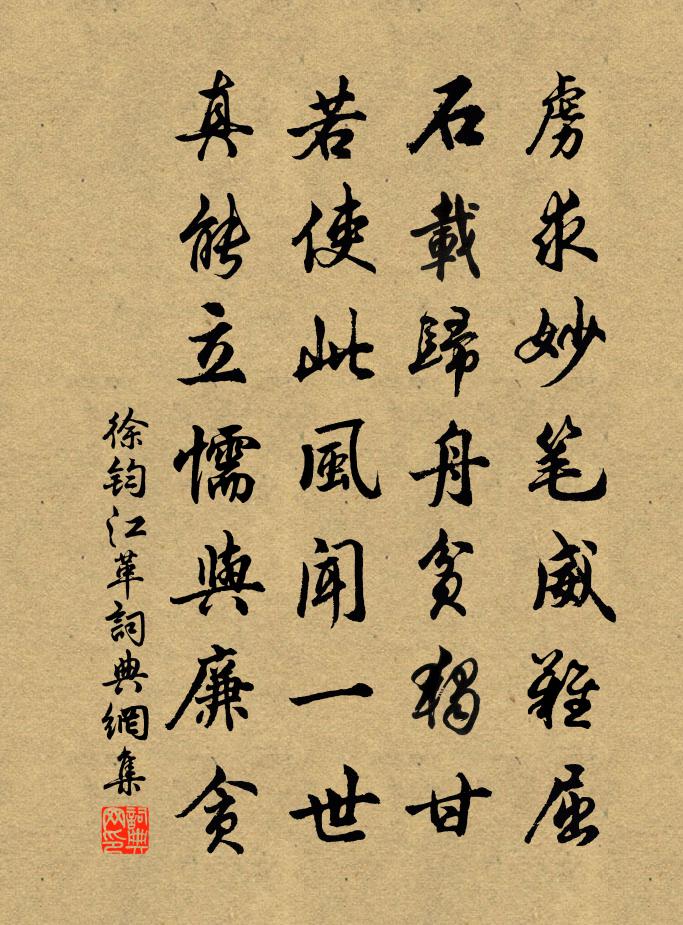 虜求妙笔威難屈
石載歸舟貧獨甘
若使此風聞一世
真能立懦與廉貪
徐鈞江革詞典網集
詞典网印